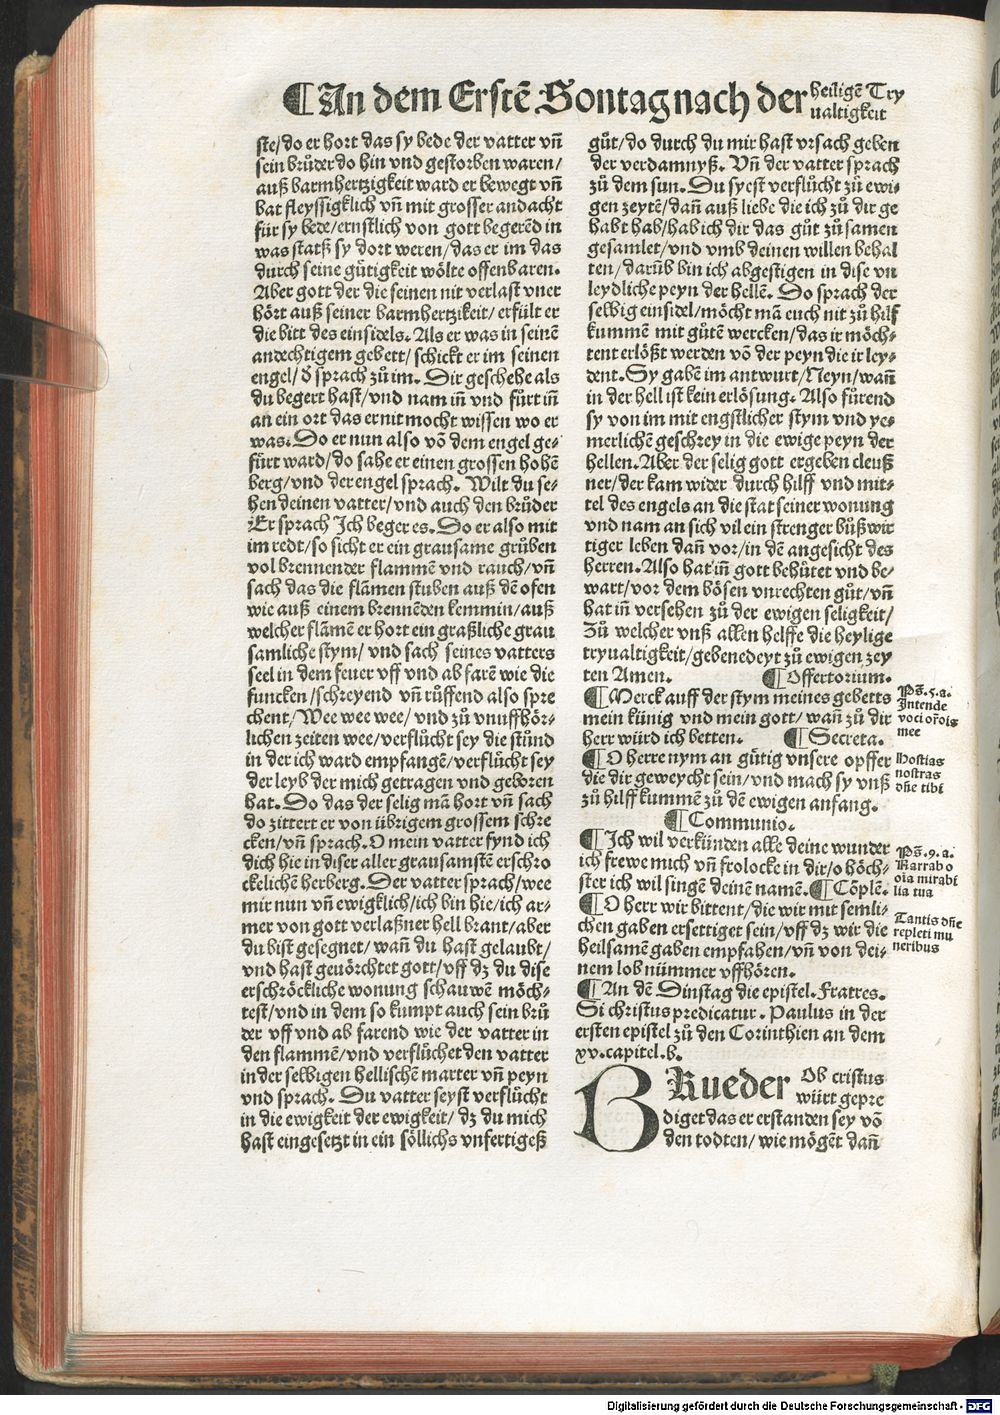 ¶ An dem Erstē Sontag nach der heiligē Try
ualtigkeit
ste/do er hort das sy bede der vatter vñ
sein brůder do hin vnd gestorben waren/
auß barmhertzigkeit ward er bewegt vñ
bat fleyssigklich vñ mit grosser andacht
für sy bede/ernstlich von gott begerēd in
was statß sy dort weren/das er im das
durch seine gůtigkeit wölte offenbaren.
Aber gott der die seinen nit verlast vner
hört auß seiner barmhertzikeit/erfült er
die bitt des einsidels. Als er was in seinē
andechtigem gebett/schickt er im seinen
engel/d̄ sprach zů im. Dir geschehe als
du begert hast/vnd nam in̄ vnd fůrt in̄
an ein ort das er nit mocht wissen wo er
was. Do er nun also vō dem engel ge-
fůrt ward/do sahe er einen grossen hohē
berg/vnd der engel sprach. Wilt du se-
hen deinen vatter/vnd auch den brůder
Er sprach Ich beger es. Do er also mit
im redt/so sicht er ein grausame grůben
vol brennender flammē vnd rauch/vñ
sach das die flāmen stuben auß dē ofen
wie auß einem brennēden kemmin/auß
welcher flāmē er hort ein graßliche grau
samliche stym/vnd sach seines vatters
seel in dem feuer vff vnd ab farē wie die
funcken/schreyend vñ růffend also spre
chent/Wee wee wee/vnd zů vnuffhör-
lichen zeiten wee/verflůcht sey die stūnd
in der ich ward empfangē/verflůcht sey
der leyb der mich getragen vnd geboren
hat. Do das der selig mā hort vñ sach
do zittert er von übrigem grossem schre
cken/vñ sprach. O mein vatter fynd ich
dich hie in diser aller grausamstē erschro
ckelichē herberg. Der vatter sprach/wee
mir nun vñ ewigklich/ich bin hie/ich ar-
mer von gott verlaßner hell brant/aber
du bist gesegnet/wañ du hast gelaubt/
vnd hast geuörchtet gott/vff dz du dise
erschröckliche wonung schauwē möch-
test/vnd in dem so kumpt auch sein brů
der vff vnd ab farend wie der vatter in
den flammē/vnd verflůchet den vatter
in der selbigen hellischē marter vñ peyn
vnd sprach. Du vatter seyst verflůcht
in die ewigkeit der ewigkeit/dz du mich
hast eingesetzt in ein söllichs vnfertigeß
gůt/do durch du mir hast vrsach geben
der verdamnyß. Vñ der vatter sprach
zů dem sun. Du syest verflůcht zů ewi-
gen zeytē/dañ auß liebe die ich zů dir ge
habt hab/hab ich dir das gůt zů samen
gesamlet/vnd vmb deinen willen behal
ten/darūb bin ich abgestigen in dise vn
leydliche peyn der hellē. Do sprach der
selbig einsidel/möcht mā euch nit zů hilf
kummē mit gůtē wercken/das ir möch-
tent erlößt werden vō der peyn die ir ley-
dent. Sy gabē im antwurt/Neyn/wañ
in der hell ist kein erlösung. Also fůrend
sy von im mit engstlicher stym vnd ye-
merlichē geschrey in die ewige peyn der
hellen. Aber der selig gott ergeben cleuß
ner/der kam wider durch hilff vnd mit-
tel des engels an die stat seiner wonung
vnd nam an sich vil ein strenger bůßwir
tiger leben dañ vor/in dē angesicht des
herren. Also hat in̄ gott behůtet vnd be-
wart/vor dem bösen vnrechten gůt/vñ
hat in̄ versehen zů der ewigen seligkeit/
Zů welcher vnß allen helffe die heylige
tryualtigkeit/gebenedeyt zů ewigen zey
ten Amen. ¶ Offertorium.
¶ Merck auff der stym meines gebetts
mein künig vnd mein gott/wañ zů dir
herr würd ich betten. ¶ Secreta.
¶ O herre nym an gůtig vnsere opffer
die dir geweycht sein/vnd mach sy vnß
zů hilff kummē zů dē ewigen anfang.
¶ Communio.
¶ Ich wil verkünden alle deine wunder
ich frewe mich vñ frolocke in dir/o höch-
ster ich wil singē deinē namē. ¶ Cōplē.
¶ O herr wir bittent/die wir mit semli-
chen gaben ersettiget sein/vff dz wir die
heilsamē gaben empfahen/vñ von dei-
nem lob nümmer vffhören.
¶ An dē Dinstag die epistel. Fratres.
Si christus predicatur. Paulus in der
ersten epistel zů den Corinthien an dem
xv. capitel. b.
BRueder Ob cristus
würt gepre
diget das er erstanden sey vō
den todten/wie mögēt dañ
Ps̄. 5. a.
Intende
voci oro̅is
mee
Hostias
nostras
dn̄e tibi
Ps̄. 9. a.
Narrabo
oīa mirabi
lia tua
Tantis dn̄e
repleti mu
neribus
Digitalisierung gefördert durch die Deutsche Forschungsgemeinschaft - DFG